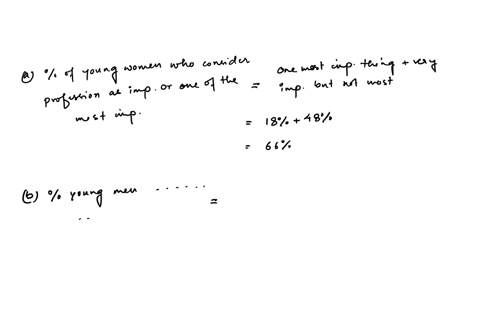 (a) % of young women who consider
profession as imp. or one of the
most imp.
= one most imp. thing + very
imp. but not most
= 18% + 48%
= 66%
(b) % young men ......
..
=